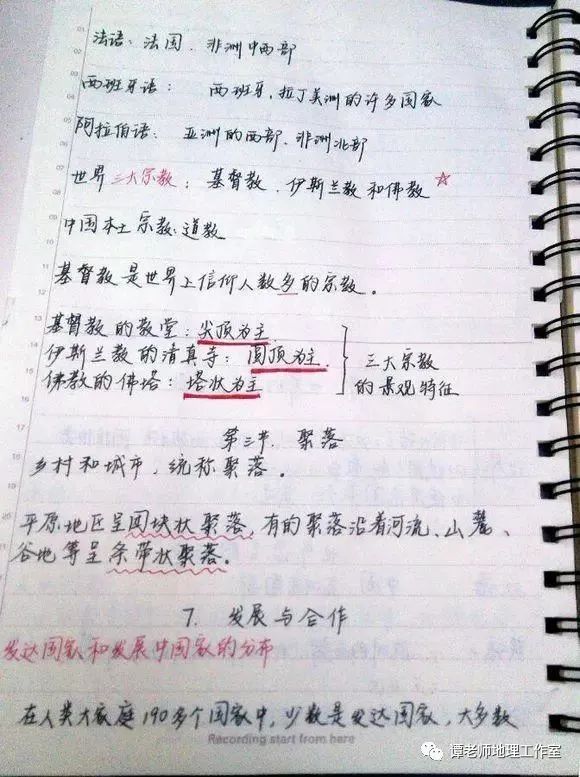 法语：法国、非洲中西部
西班牙语： 西班牙，拉丁美洲的许多国家
阿拉伯语： 亚洲的西部、非洲北部
世界三大宗教：基督教、伊斯兰教和佛教 ☆
中国本土宗教：道教
基督教是世界上信仰人数多的宗教。
基督教的教堂：尖顶为主
伊斯兰教的清真寺：圆顶为主
佛教的佛塔：塔状为主
三大宗教
的景观特征
第三节 聚落
乡村和城市，统称聚落。
平原地区呈团块状聚落，有的聚落沿着河流、山麓、
谷地等呈条带状聚落。
7. 发展与合作
发达国家和发展中国家的分布
在人类大家庭190多个国家中，少数是发达国家，大多数
Recording start from here
谭老师地理工作室